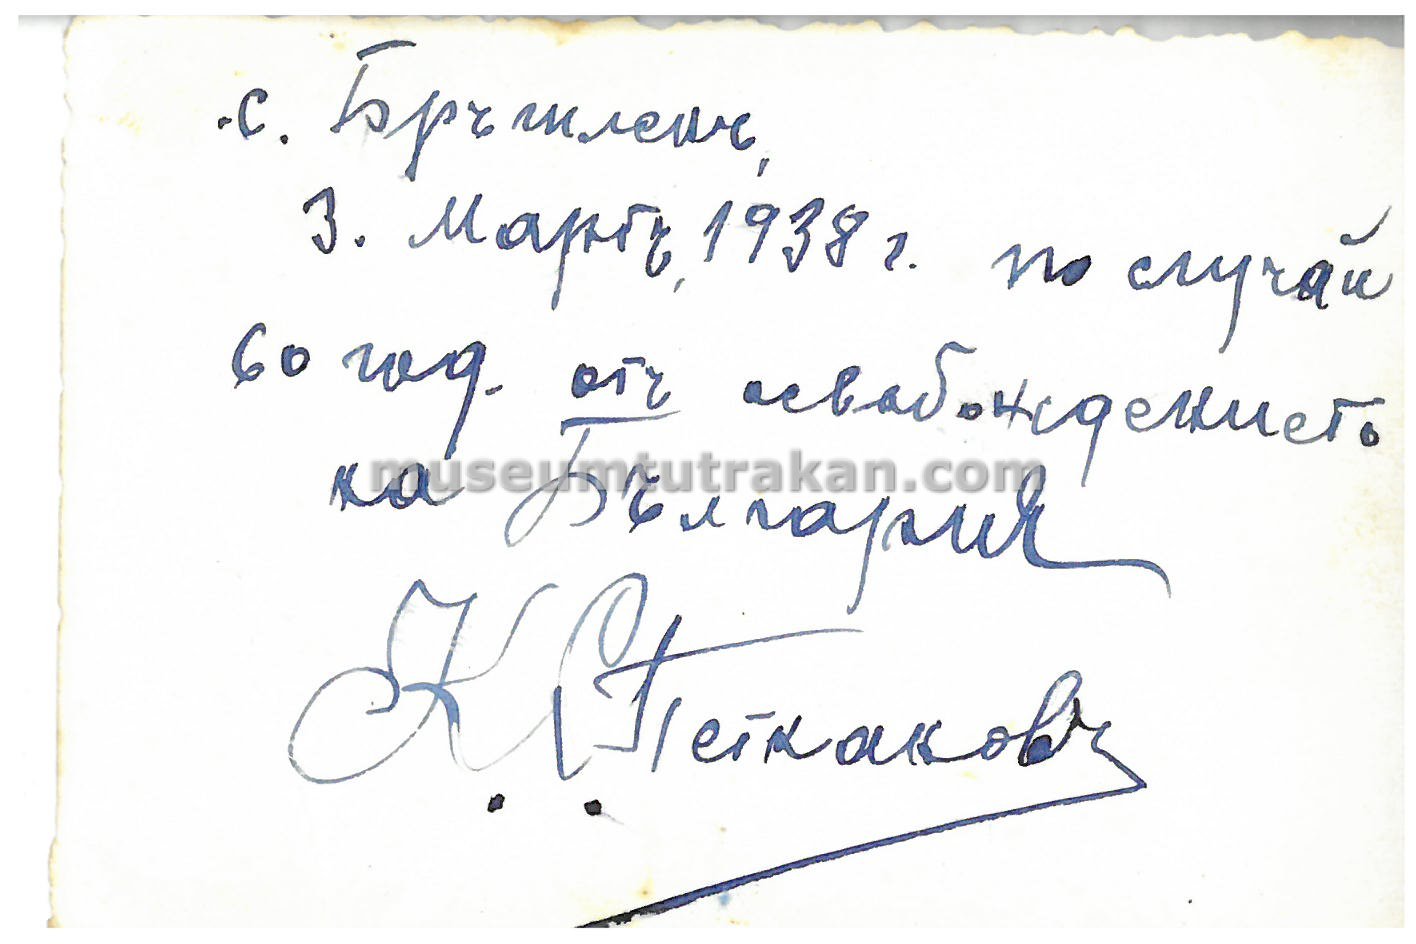 с. Бръшленъ,
3. Мартъ, 1938 г. по случай
60 год. отъ освобождението
на България
museumtutrakan.com
К.